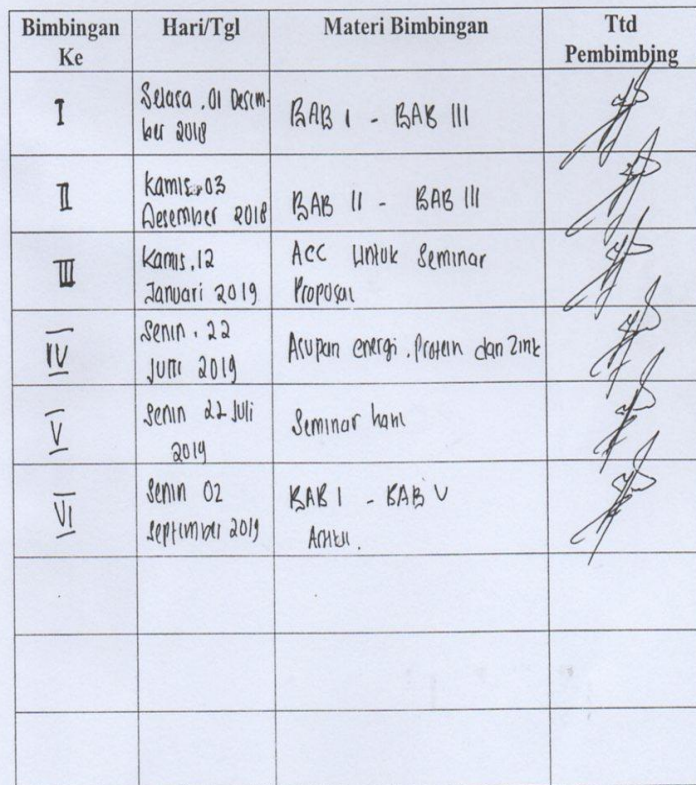 Bimbingan Ke
Hari/Tgl
Materi Bimbingan
Ttd Pembimbing
I
Selasa, 01 Desem-
ber 2018
BAB I - BAB III
II
Kamis, 03
Desember 2018
BAB II - BAB III
III
Kamis, 12
Januari 2019
ACC Untuk Seminar
Proposal
IV
Senin, 22
2019
Asupan energi, Protein dan Zink
V
Senin 22 Juli
2019
Seminar hasil
VI
Senin 02
September 2019
BAB I - BAB V